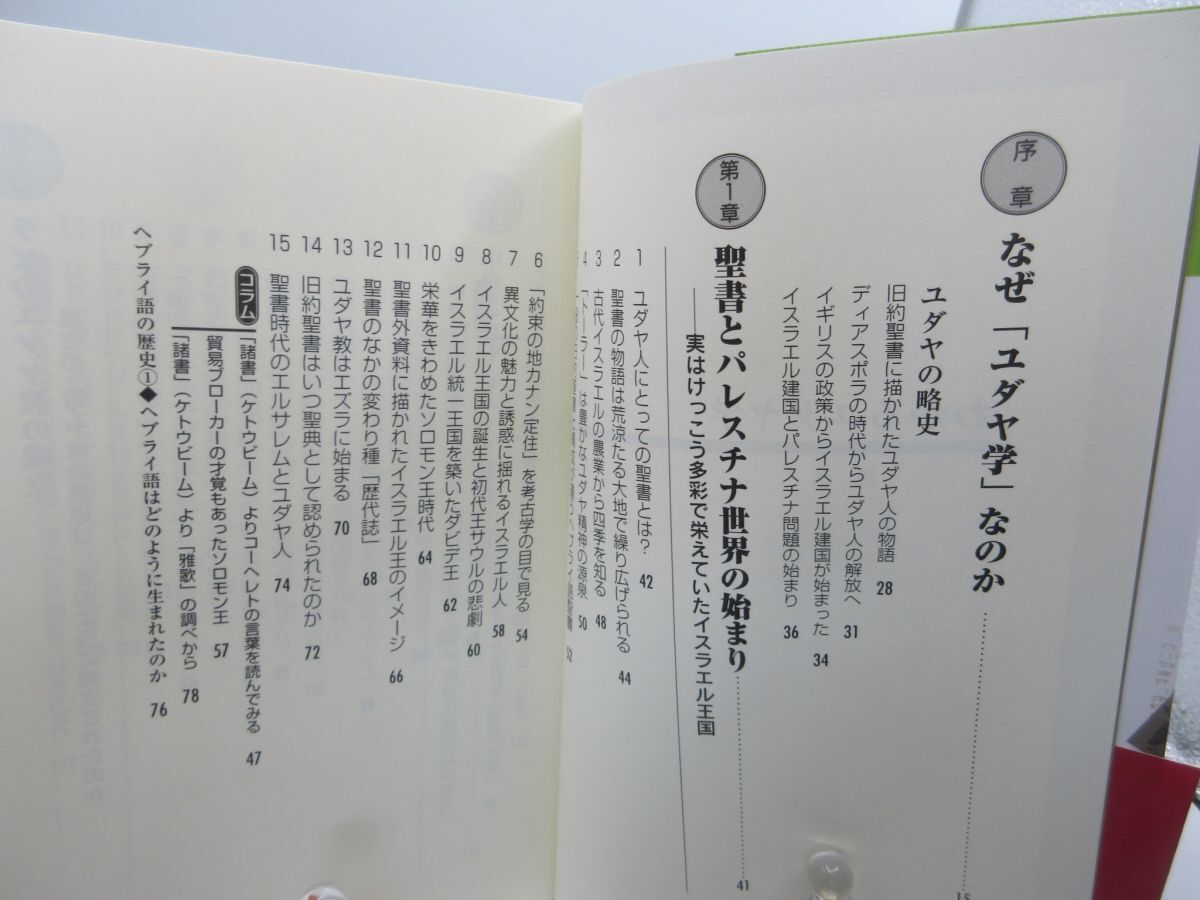 序章
なぜ「ユダヤ学」なのか……………… 15
ユダヤの略史
旧約聖書に描かれたユダヤ人の物語 28
ディアスポラの時代からユダヤ人の解放へ 31
イギリスの政策からイスラエル建国が始まった 34
イスラエル建国とパレスチナ問題の始まり 36
第1章
聖書とパレスチナ世界の始まり……………… 41
――実はけっこう多彩で栄えていたイスラエル王国
1 ユダヤ人にとっての聖書とは? 42
2 聖書の物語は荒涼たる大地で繰り広げられる 44
3 古代イスラエルの農業から四季を知る 48
4 「トーラー」は豊かなユダヤ精神の源泉 50
52
6 「約束の地カナン定住」を考古学の目で見る 54
7 異文化の魅力と誘惑に揺れるイスラエル人 58
8 イスラエル王国の誕生と初代王サウルの悲劇 60
9 イスラエル統一王国を築いたダビデ王 62
10 栄華をきわめたソロモン王時代 64
11 聖書外資料に描かれたイスラエル王のイメージ 66
12 聖書のなかの変わり種「歴代誌」 68
13 ユダヤ教はエズラに始まる 70
14 旧約聖書はいつ聖典として認められたのか 72
15 聖書時代のエルサレムとユダヤ人 74
コラム 「諸書」(ケトウビーム)よりコーヘレトの言葉を読んでみる 47
貿易ブローカーの才覚もあったソロモン王 57
「諸書」(ケトウビーム)より「雅歌」の調べから 78
ヘブライ語の歴史①◆ヘブライ語はどのように生まれたのか 76